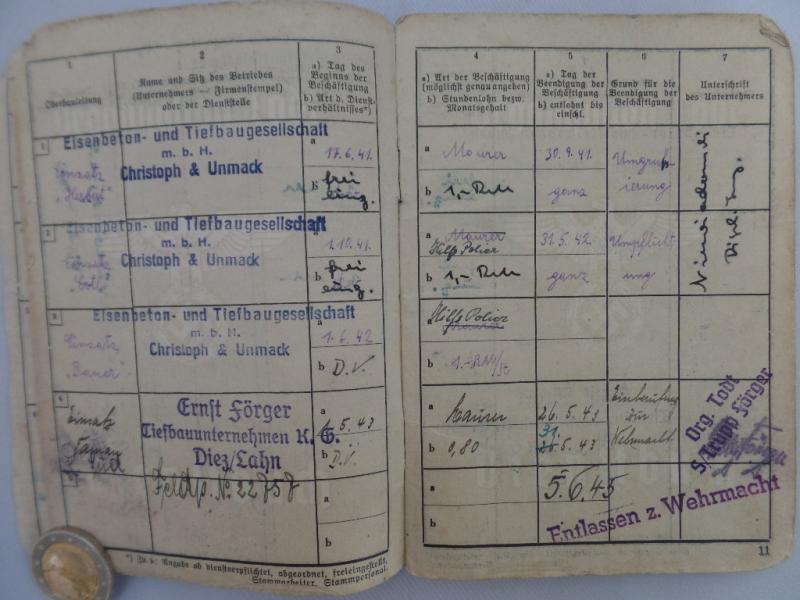 1
2
3
Oberbauleitung
Name und Sitz des Betriebes
(Unternehmers — Firmenstempel)
oder der Dienststelle
a) Tag des
Beginns der
Beschäftigung
b) Art d. Dienst-
verhältnisses*)
1
Eisenbeton- und Tiefbaugesellschaft
m. b. H.
Christoph & Unmack
Einsatz
a
17.6.41.
b
frei
2
Eisenbeton- und Tiefbaugesellschaft
m. b. H.
Christoph & Unmack
Einsatz
a
1.10.41.
b
frei
3
Eisenbeton- und Tiefbaugesellschaft
m. b. H.
Christoph & Unmack
Einsatz
"Bauer"
a
1.6.42
b
D.V.
4
Einsatz
Ernst Förger
Tiefbauunternehmen K. G.
Diez/Lahn
a
5.43
b
D.V.
Feldp. Nr. 22757
a
b
*) Zu b: Angabe ob dienstverpflichtet, abgeordnet, freieingestellt,
Stammarbeiter, Stammpersonal.
4
5
6
7
a) Art der Beschäftigung
(möglichst genau angeben)
b) Stundenlohn bezw.
Monatsgehalt
a) Tag der
Beendigung der
Beschäftigung
b) entlohnt bis
einschl.
Grund für die
Beendigung der
Beschäftigung
Unterschrift
des Unternehmers
a
Maurer
30.9.41.
Umgrupp-
ierung
b
1,-
ganz
a
Maurer
Hilfs Polier
31.5.42
Umpflicht
ung
b
1,-
ganz
a
Hilfs Polier
Maurer
b
1.-
a
Maurer
26.5.43
Einberufung
zur
Wehrmacht
b
0,80
31
5.43
Org. Todt
S. Trupp Förger
a
5.6.45
b
Entlassen z. Wehrmacht
11